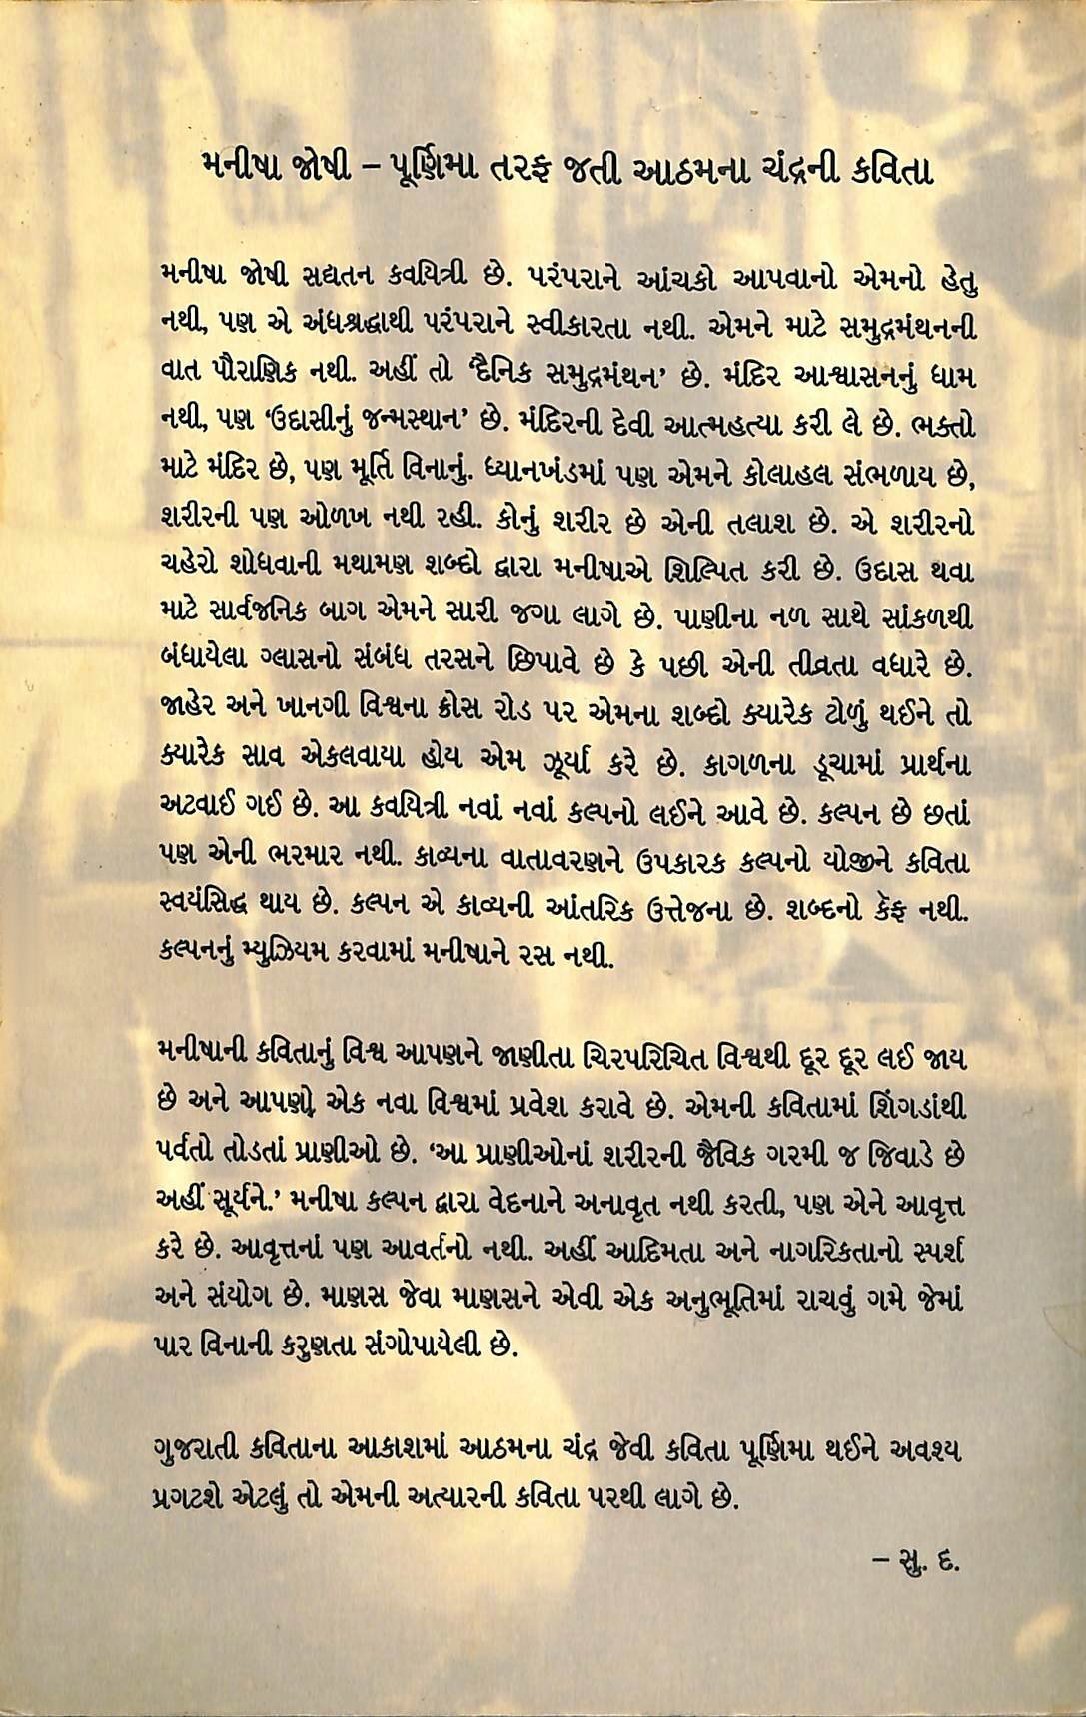 મનીષા જોષી – પૂર્ણિમા તરફ જતી આઠમના ચંદ્રની કવિતા
મનીષા જોષી સદ્યતન કવયિત્રી છે. પરંપરાને આંચકો આપવાનો એમનો હેતુ
નથી, પણ એ અંધશ્રદ્ધાથી પરંપરાને સ્વીકારતા નથી. એમને માટે સમુદ્રમંથનની
વાત પૌરાણિક નથી. અહીં તો ‘દૈનિક સમુદ્રમંથન’ છે. મંદિર આશ્વાસનનું ધામ
નથી, પણ ‘ઉદાસીનું જન્મસ્થાન’ છે. મંદિરની દેવી આત્મહત્યા કરી લે છે. ભક્તો
માટે મંદિર છે, પણ મૂર્તિ વિનાનું. ધ્યાનખંડમાં પણ એમને કોલાહલ સંભળાય છે,
શરીરની પણ ઓળખ નથી રહી. કોનું શરીર છે એની તલાશ છે. એ શરીરનો
ચહેરો શોધવાની મથામણ શબ્દો દ્વારા મનીષાએ શિલ્પિત કરી છે. ઉદાસ થવા
માટે સાર્વજનિક બાગ એમને સારી જગા લાગે છે. પાણીના નળ સાથે સાંકળથી
બંધાયેલા ગ્લાસનો સંબંધ તરસને છિપાવે છે કે પછી એની તીવ્રતા વધારે છે.
જાહેર અને ખાનગી વિશ્વના ક્રોસ રોડ પર એમના શબ્દો ક્યારેક ટોળું થઈને તો
ક્યારેક સાવ એકલવાયા હોય એમ ઝૂર્યા કરે છે. કાગળના ડૂચામાં પ્રાર્થના
અટવાઈ ગઈ છે. આ કવયિત્રી નવાં નવાં કલ્પનો લઈને આવે છે. કલ્પન છે છતાં
પણ એની ભરમાર નથી. કાવ્યના વાતાવરણને ઉપકારક કલ્પનો યોજીને કવિતા
સ્વયંસિદ્ધ થાય છે. કલ્પન એ કાવ્યની આંતરિક ઉત્તેજના છે. શબ્દનો કૅફ નથી.
કલ્પનનું મ્યુઝિયમ કરવામાં મનીષાને રસ નથી.
મનીષાની કવિતાનું વિશ્વ આપણને જાણીતા ચિરપરિચિત વિશ્વથી દૂર દૂર લઈ જાય
છે અને આપણો એક નવા વિશ્વમાં પ્રવેશ કરાવે છે. એમની કવિતામાં શિંગડાંથી
પર્વતો તોડતાં પ્રાણીઓ છે. ‘આ પ્રાણીઓનાં શરીરની જૈવિક ગરમી જ જિવાડે છે
અહીં સૂર્યને.’ મનીષા કલ્પન દ્વારા વેદનાને અનાવૃત નથી કરતી, પણ એને આવૃત્ત
કરે છે. આવૃત્તનાં પણ આવર્તનો નથી. અહીં આદિમતા અને નાગરિકતાનો સ્પર્શ
અને સંયોગ છે. માણસ જેવા માણસને એવી એક અનુભૂતિમાં રાચવું ગમે જેમાં
પાર વિનાની કરુણતા સંગોપાયેલી છે.
ગુજરાતી કવિતાના આકાશમાં આઠમના ચંદ્ર જેવી કવિતા પૂર્ણિમા થઈને અવશ્ય
પ્રગટશે એટલું તો એમની અત્યારની કવિતા પરથી લાગે છે.
– સુ. દ.